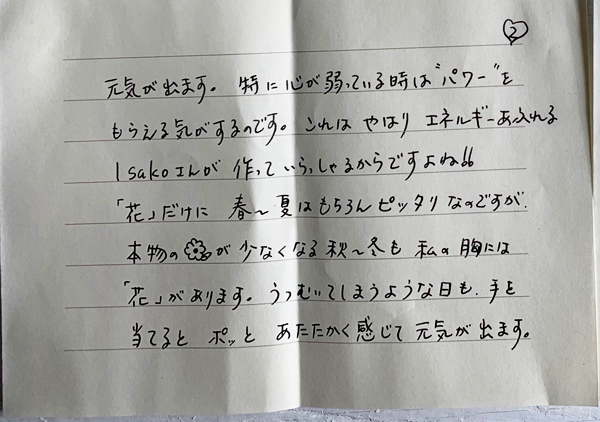 2
元気が出ます。特に心が弱っている時は"パワー"を
もらえる気がするのです。これは やはり エネルギーあふれる
Isakoさんが 作っていらっしゃるからですよね!!
「花」だけに 春〜夏はもちろん ピッタリ なのですが、
本物の が 少なくなる 秋〜冬も 私の 胸には
「花」があります。うつむいてしまうような日も、手を
当てると ポッと あたたかく 感じて 元気が出ます。